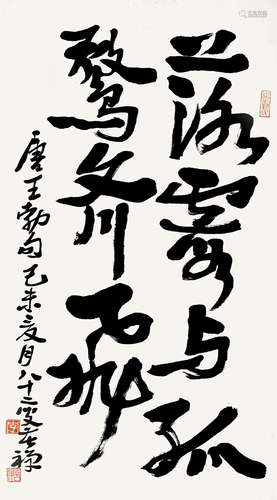 落霞与孤
鹜齐飞
唐王勃句 己未夏月八十二叟